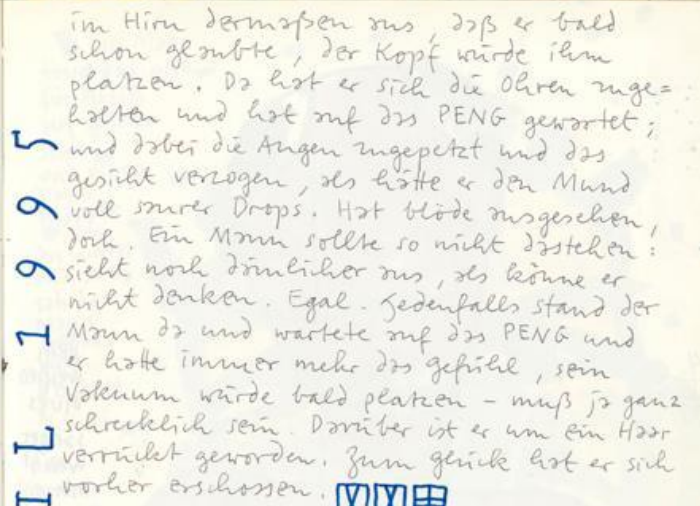 im Hirn dermaßen aus, daß er bald
schon glaubte, der Kopf würde ihm
platzen. Da hat er sich die Ohren zuge=
halten und hat auf das PENG gewartet;
und dabei die Augen zugepetzt und das
gesicht verzogen, als hätte er den Mund
voll saurer Drops. Hat blöde ausgesehen,
doch. Ein Mann sollte so nicht dastehen:
sieht noch dämlicher aus, als könne er
nicht denken. Egal. Jedenfalls stand der
Mann da und wartete auf das PENG und
er hatte immer mehr das gefühl, sein
Vakuum würde bald platzen – muß ja ganz
schrecklich sein. Darüber ist er um ein Haar
verrückt geworden. Zum glück hat er sich
vorher erschossen.
IL 1995